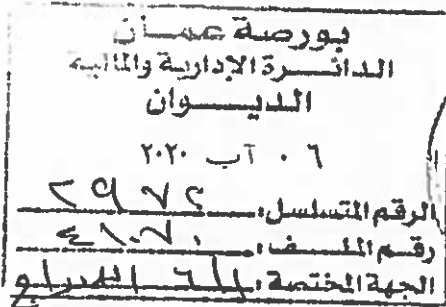 بورصة عمسان
الدائسرة الإدارية والمالية
الديسوان
٠٦ آب ٢٠٢٠
الرقم المتسلسل: ٢٩٧٢
رقم الملف: ٤١٠٧٠
الجهة المختصة: